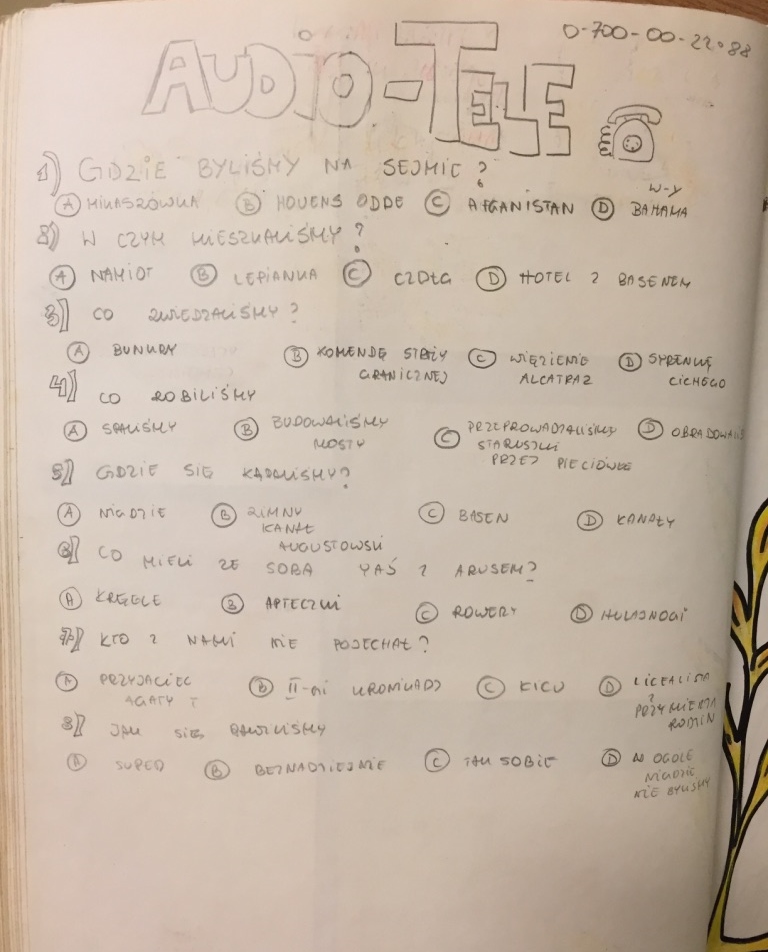 0-700-00-22-88
AUDIO-TELE
1) GDZIE BYLIŚMY NA SEJMIE?
A MIKASZÓWKA B HOUENS ODDE C AFGANISTAN D W-Y BAHAMA
2) W CZYM MIESZKALIŚMY?
A NAMIOT B LEPIANKA C CZOŁG D HOTEL Z BASENEM
3) CO ZWIEDZALIŚMY?
A BUNKRY B KOMENDĘ STRAŻY C WIĘZIENIE D SYRENKĘ
GRANICZNEJ ALCATRAZ CICHEGO
4) CO ROBILIŚMY
A SPALIŚMY B BUDOWALIŚMY C PRZEPROWADZALIŚMY D OBRADOWALIŚ
MOSTY STARUSZKI
PRZEZ
5) GDZIE SIĘ KĄPALIŚMY?
A NIGDZIE B ZIMNY C BASEN D KANAŁY
KANAŁ
AUGUSTOWSKI
6) CO MIELI ZE SOBĄ YAŚ Z ARUSEM?
A KRĘGLE B APTECZKI C ROWERY D HULAJNOGI
7) KTO Z NAMI NIE POJECHAŁ?
A PRZYJACIEL B II-MI C KICU D LICEALISTA
AGATY T Z
PRZYMIERZA
RODZIN
8) JAK SIĘ BAWILIŚMY
A SUPER B BEZNADZIEJNIE C TAK SOBIE D W OGÓLE
NIGDZIE
NIE BYLIŚMY